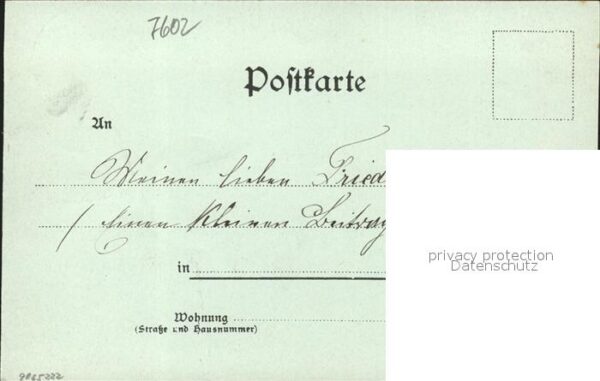 7602
Poſtkarte
An
Meinen lieben Fried
/ Einen kleinen Beitrag
privacy protection
Datenschutz
in
Wohnung
(Straße und Hausnummer)
9865222